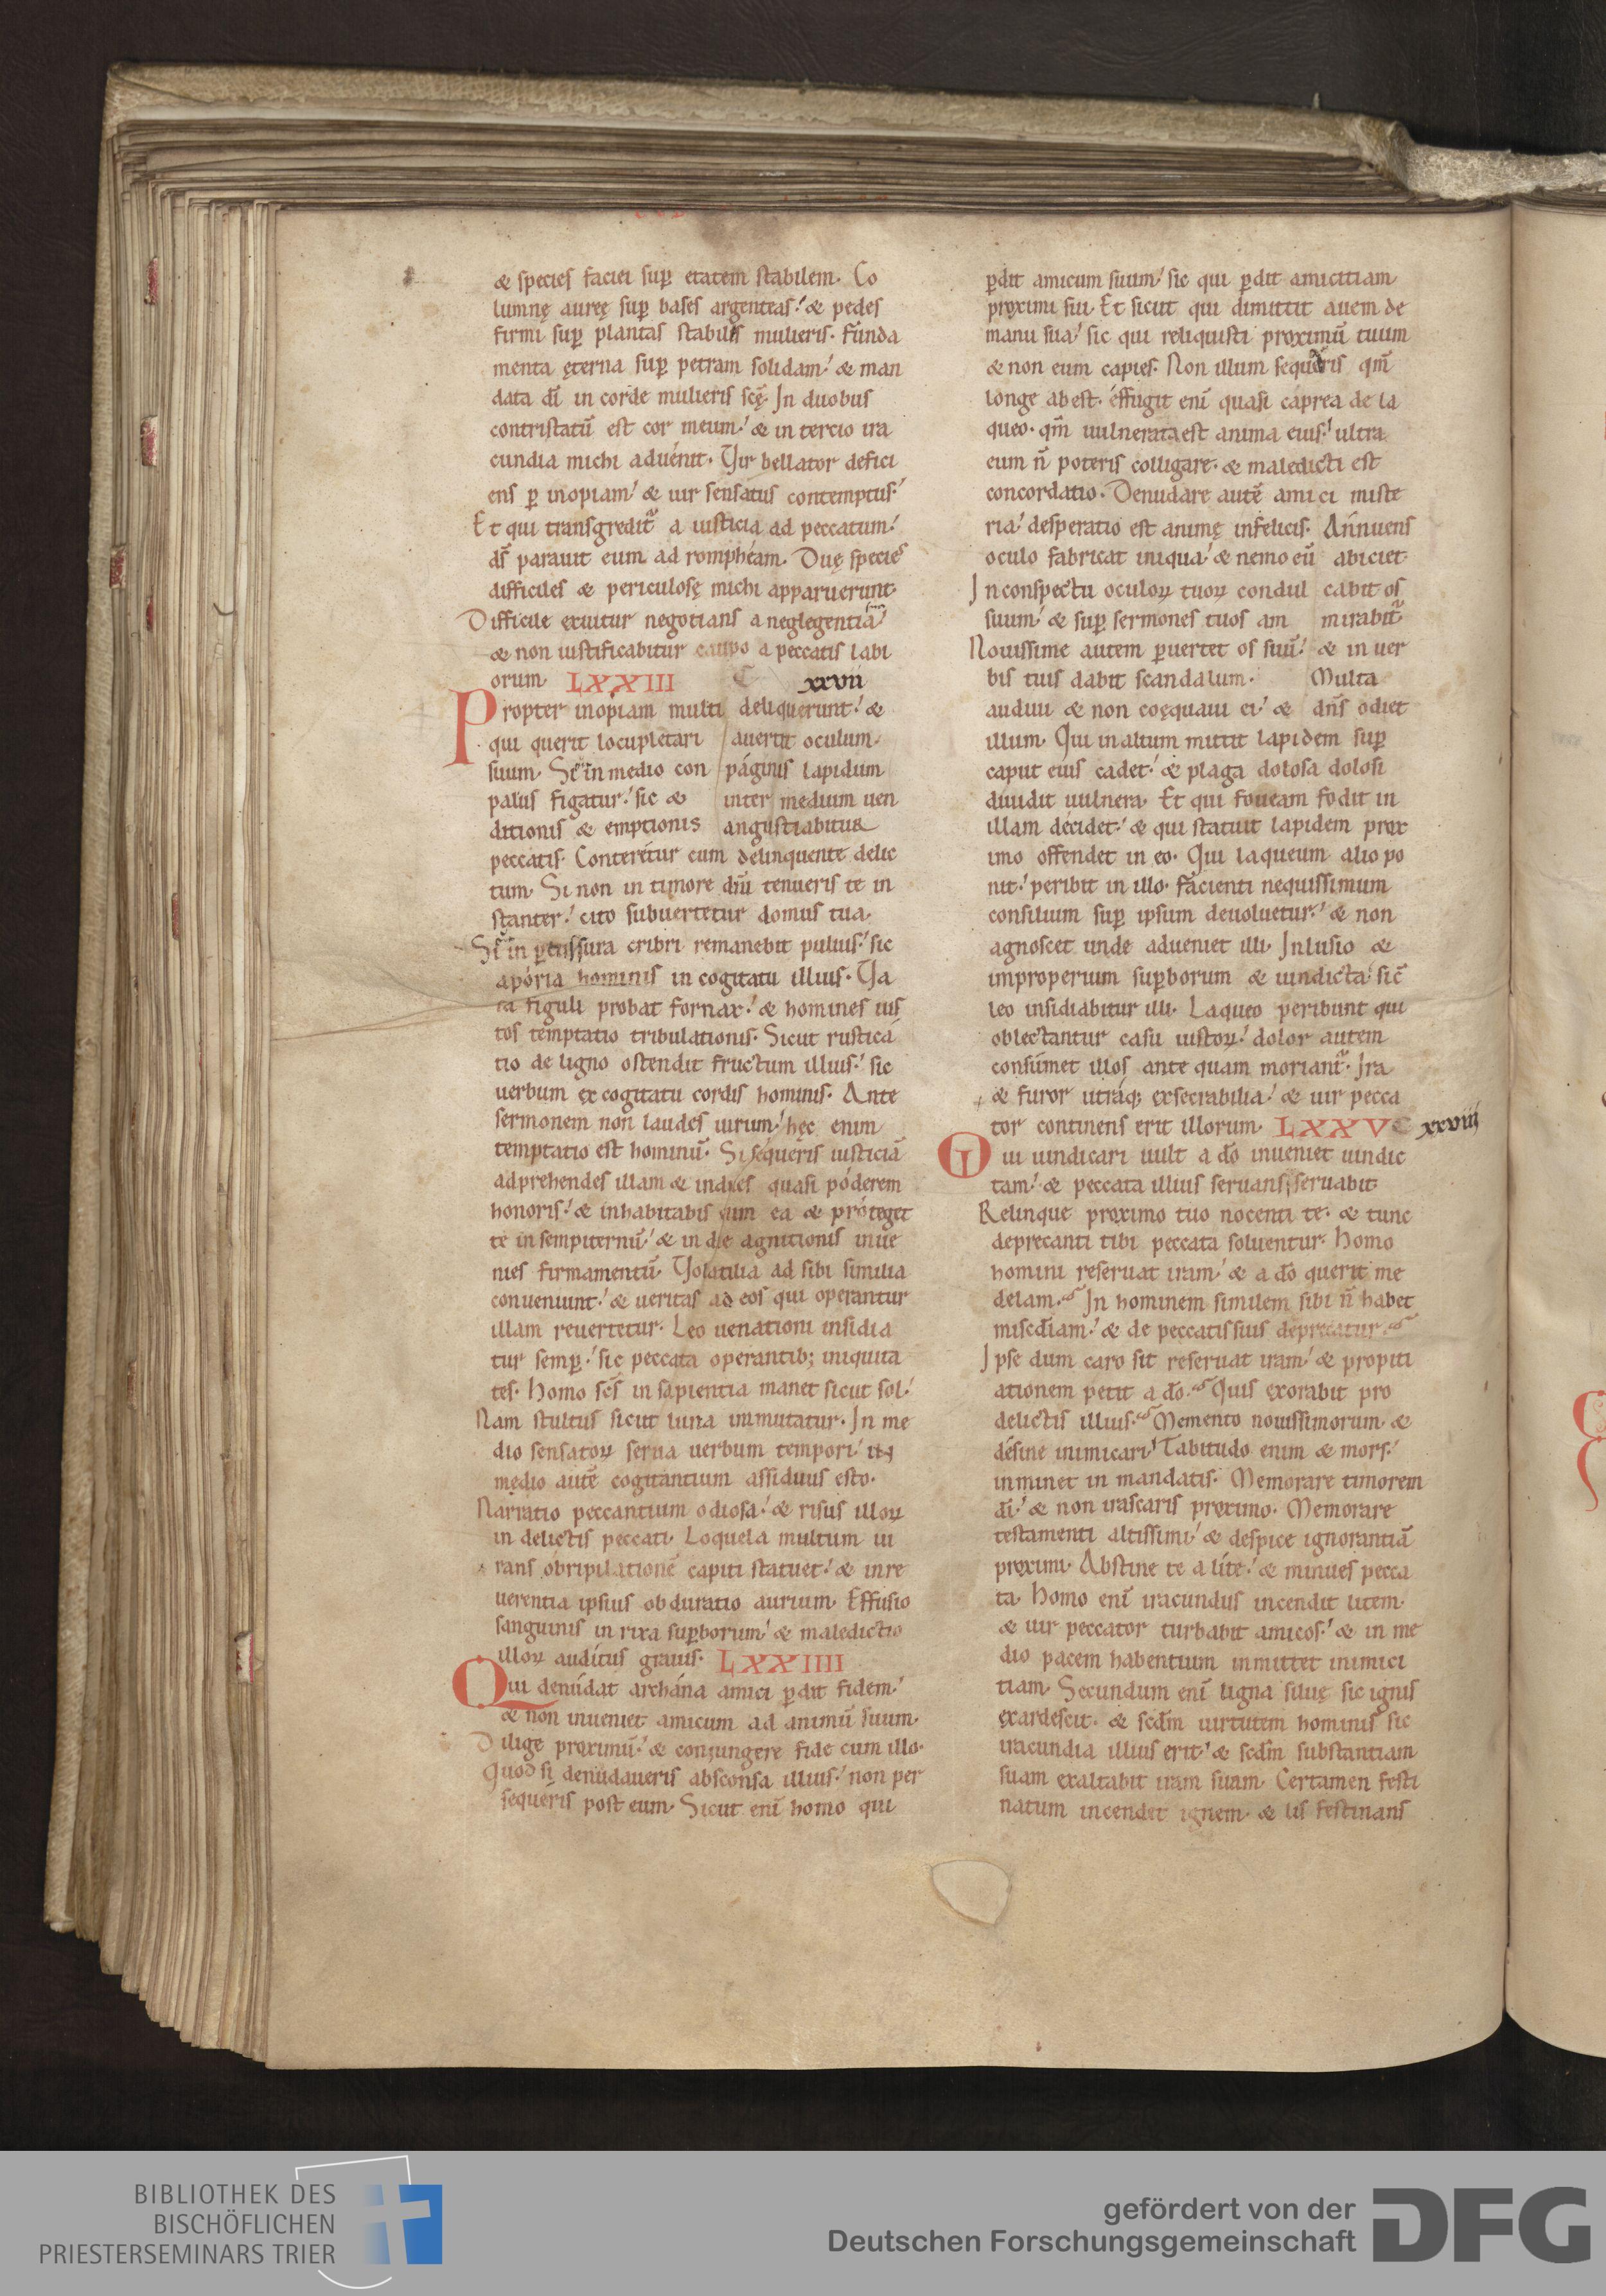 & species faciei sup̱ etatem stabilem. Co
lumnę aureę sup̱ bases argenteas. & pedes
firmi sup̱ plantas stabilis mulieris. Funda
menta ęterna sup̱ petram solidam. & man
data dī in corde mulieris scę̄. In duobus
contristatū est cor meum. & in tercio ira
cundia michi aduenit. Vir bellator defici
ens ꝑ inopiam. & uir sensatus contemptus.
Et qui transgredit᷑ a iusticia ad peccatum.
ds̄ parauit eum ad rompheam. Duę species
difficiles & periculosę michi apparuerunt.
Difficile exuitur negotians a neglegentia
& non iustificabitur caupo a peccatis labi
orum. LXXIII xxvii
Propter inopiam multi deliquerunt. &
qui querit locupletari auertit oculum
suum. Sic̄ in medio con páginis lapidum
palus figatur. sic & inter medium uen
ditionis & emptionis angustiabitur
peccatis. Conterétur cum delinquente delic
tum. Si non in timore dn̄i tenueris te in
stanter. cito subuertetur domus tua.
Sic̄ in ꝑcussura cribri remanebit puluis. sic
apória hominis in cogitatu illius. Va
sa figuli probat fornax. & homines ius
tos temptatio tribulationis. Sicut rusticá
tio de ligno ostendit fructum illius. sic
uerbum ex cogitatu cordis hominis. Ante
sermonem non laudes uirum. hęc enim
temptatio est hominū. Si sequeris iusticiā
adprehendes illam & indues quasi póderem
honoris. & inhabitabis cum ea & próteget
te in sempiternū. & in die agnitionis inue
nies firmamentū. Volatilia ad sibi similia
conueniunt. & ueritas ad eos qui operantur
illam reuertetur. Leo uenationi insidia
tur semꝑ. sic peccata operantib; iniquita
tes. Homo scs̄ in sapientia manet sicut sol.
Nam stultus sicut luna immutatur. In me
dio sensatoꝝ serua uerbum tempori. in
medio autē cogitantium assiduus esto.
Narratio peccantium odiosa. & risus illoꝝ
in delictis peccati. Loquela multum iu
rans obripilationē capiti statuet. & inre
uerentia ipsius obduratio aurium. Effusio
sanguinis in rixa suꝑborum. & maledictio
illoꝝ auditus grauis. LXXIIII
Qui denúdat archána amici ꝑdit fidem.
& non inueniet amicum ad animū suum.
Dilige proximū. & coniungere fide cum illo.
Quod si denudaueris absconsa illius. non per
sequéris post eum. Sicut enī homo qui
ꝑdit amicum suum. sic qui ꝑdit amicitiam
proximi sui. Et sicut qui dimittit auem de
manu sua. sic qui reliquisti proximū tuum
& non eum capies. Non illum sequáris qm̄
longe abest. éffugit enī quasi cáprea de la
queo. qm̄ uulnerata est anima eius. ultra
eum n̄ poteris colligare. & maledicti est
concordatio. Denudare autē amici miste
ria. desperatio est animę infelicis. Annuens
oculo fabricat iniqua. & nemo eū abiciet.
In conspectu oculoꝝ tuoꝝ condul cabit os
suum. & sup̱ sermones tuos am mirabit᷑
Nouissime autem ꝑuertet os suū. & in uer
bis tuis dabit scandalum. Multa
audiui & non coęquaui ei. & dn̄s odiet
illum. Qui in altum mittit lapidem sup̱
caput eius cadet. & plaga dolosa dolosi
diuidit uulnera. Et qui foueam fodit in
illam décidet. & qui statuit lapidem prox
imo offendet in eo. Qui laqueum alio po
nit. peribit in illo. Facienti nequissimum
consilium sup̱ ipsum deuoluetur. & non
agnoscet unde adueniet illi. Inlusio &
improperium suꝑborum & uindicta sic̄
leo insidiabitur illi. Laqueo peribunt qui
oblectantur casu iustoꝝ. dolor autem
consúmet illos ante quam moriant᷑. Ira
& furor utráq; exsecrabilia. & uir pecca
tor continens erit illorum. LXXV xxviii
Qui uindicari uult a do inueniet uindic
tam. & peccata illius seruans seruabit
Relinque proximo tuo nocenti te. & tunc
deprecanti tibi peccata soluentur. Homo
homini reseruat iram. & a do querit me
delam. In hominem similem sibi n̄ habet
miscdiam. & de peccatis suis deprecatur.
Ipse dum caro sit reseruat iram. & propiti
ationem petit a do. Quis exorabit pro
delictis illius. Memento nouissimorum &
désine inimicari. Tabitudo enim & mors.
inminet in mandatis. Memorare timorem
di. & non irascaris proximo. Memorare
testamenti altissimi. & despice ignorantiā
proximi. Abstine te a lite. & minues pecca
ta. Homo enī iracundus incendit litem.
& uir peccator turbabit amicos. & in me
dio pacem habentium inmittet inimici
tiam. Secundum enī ligna siluę sic ignis
exardescit. & scdm̄ uirtutem hominis sic
iracundia illius erit. & scdm̄ substantiam
suam exaltabit iram suam. Certamen festi
natum incendet ignem. & lis festinans
BIBLIOTHEK DES
BISCHÖFLICHEN
PRIESTERSEMINARS TRIER
gefördert von der
Deutschen Forschungsgemeinschaft
DFG